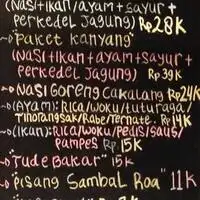 (NASI+IKAN/AYAM+SAYUR+
PERKEDEL JAGUNG) Rp28K
"PAKET KANYANG"
(NASI+IKAN+AYAM+SAYUR+
PERKEDEL JAGUNG) Rp 39K
NASI GORENG CAKALANG Rp24K
(AYAM): RICA/WOKU/TUTURAGA/
TINORANGSAK/RABE/TERNATE. Rp 14K
(IKAN): RICA/WOKU/PEDIS/SAUS/
PAMPES Rp 15K
"TUDE BAKAR" 15K
"PISANG SAMBAL ROA" 11K